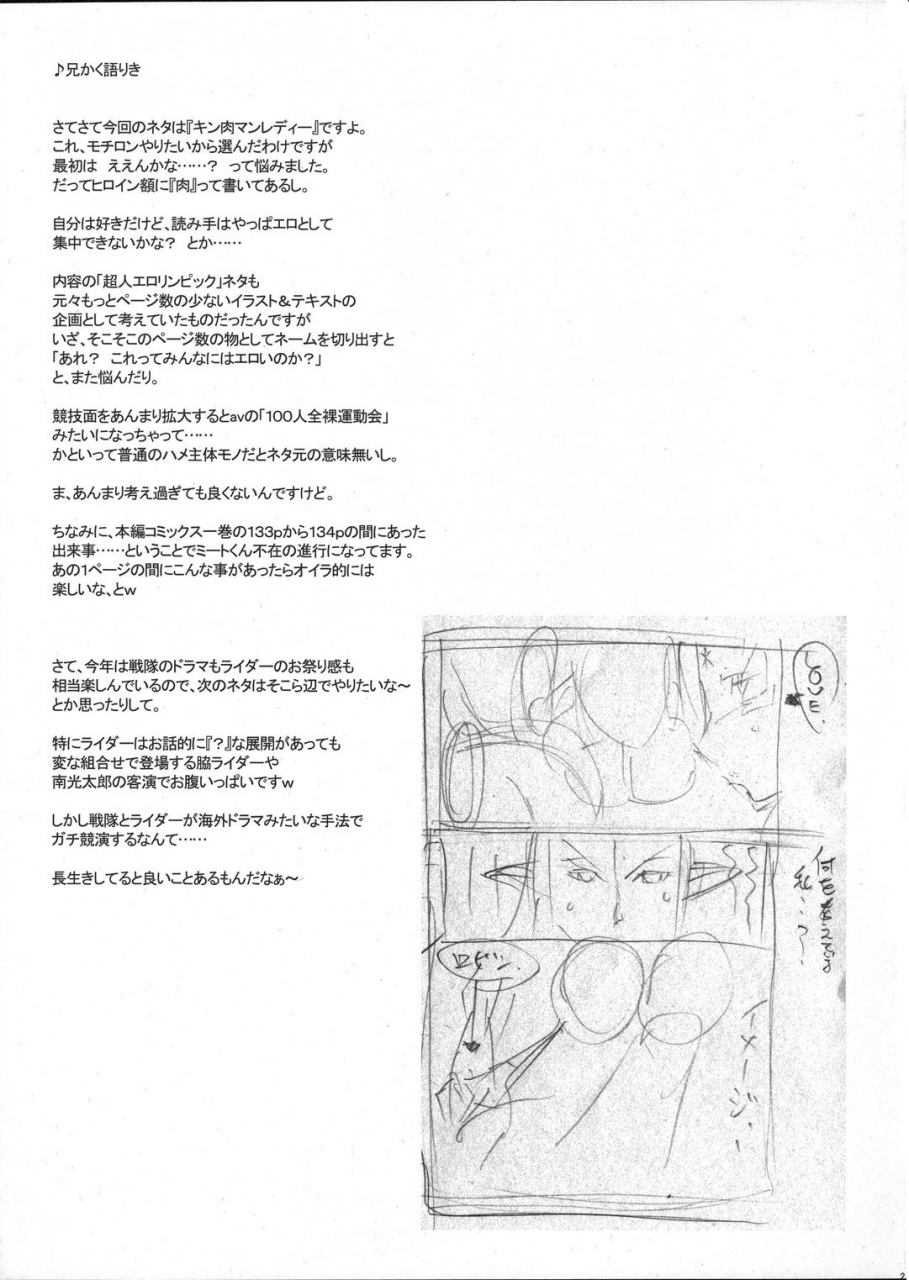 ♪兄かく語りき
さてさて今回のネタは『キン肉マンレディー』ですよ。
これ、モチロンやりたいから選んだわけですが
最初は　ええんかな……？　って悩みました。
だってヒロイン額に『肉』って書いてあるし。
自分は好きだけど、読み手はやっぱエロとして
集中できないかな？　とか……
内容の「超人エロリンピック」ネタも
元々もっとページ数の少ないイラスト＆テキストの
企画として考えていたものだったんですが
いざ、そこそこのページ数の物としてネームを切り出すと
「あれ？　これってみんなにはエロいのか？」
と、また悩んだり。
競技面をあんまり拡大するとavの「100人全裸運動会」
みたいになっちゃって……
かといって普通のハメ主体モノだとネタ元の意味無いし。
ま、あんまり考え過ぎても良くないんですけど。
ちなみに、本編コミックス一巻の133pから134pの間にあった
出来事……ということでミートくん不在の進行になってます。
あの1ページの間にこんな事があったらオイラ的には
楽しいな、とｗ
さて、今年は戦隊のドラマもライダーのお祭り感も
相当楽しんでいるので、次のネタはそこら辺でやりたいな～
とか思ったりして。
特にライダーはお話的に『？』な展開があっても
変な組合せで登場する脇ライダーや
南光太郎の客演でお腹いっぱいですｗ
しかし戦隊とライダーが海外ドラマみたいな手法で
ガチ競演するなんて……
長生きしてると良いことあるもんだなぁ～
LOVE
私…？
ロビン
イメージ
2